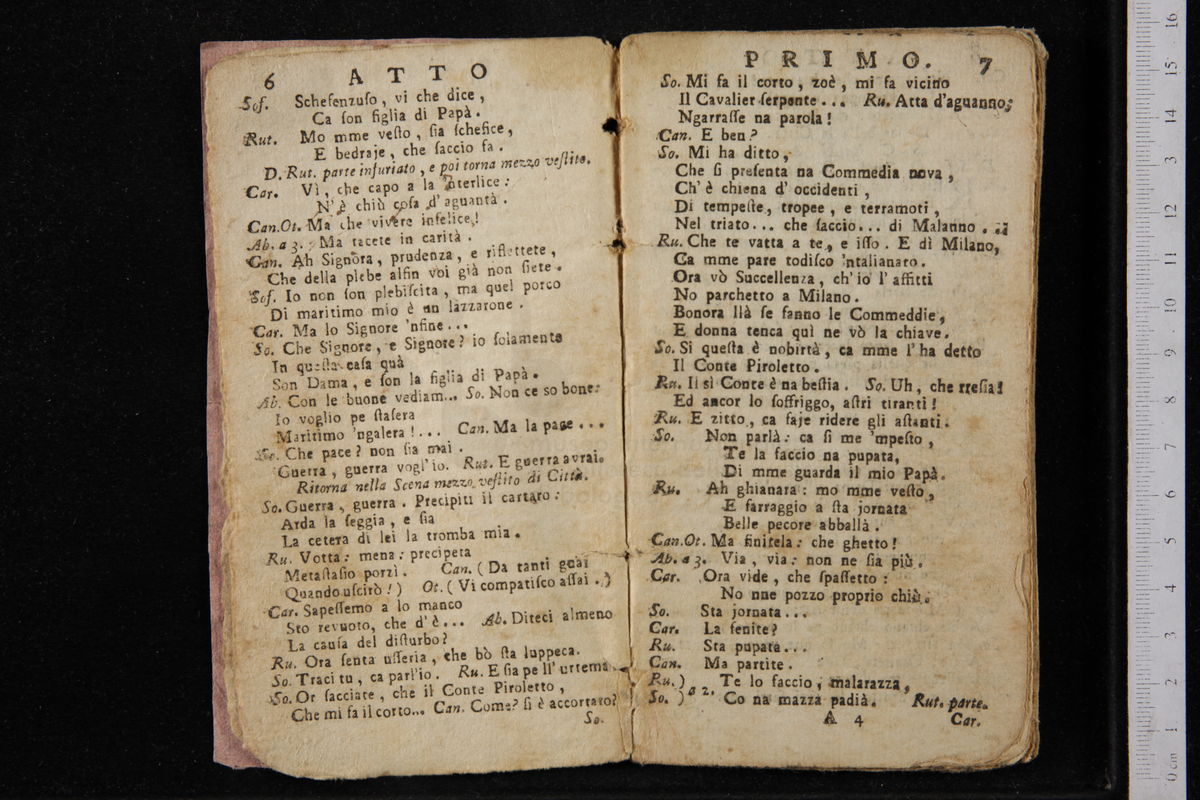 6 ATTO
Sof. Schefenzuſo, vi che dice,
Ca ſon figlia di Papà.
Rut. Mo mme veſto, ſia ſchefice,
E bedraje, che faccio fa.
D. Rut. parte infuriato, e poi torna mezzo veſtito.
Car. Vì, che capo a la nterlice:
N'è chiù coſa d'aguantà.
Can.Ot. Ma che vivere infelice!
Ab. a 3. Ma tacete in carità.
Can. Ah Signora, prudenza, e riflettete,
Che della plebe alfin voi già non ſiete.
Sof. Io non ſon plebiſcita, ma quel porco
Di maritimo mio è un lazzarone.
Car. Ma lo Signore 'nfine...
So. Che Signore, e Signore? io ſolamente
In queſta caſa quà
Son Dama, e ſon la figlia di Papà.
Ab. Con le buone vediam... So. Non ce so bone:
Io voglio pe ſtaſera
Maritimo 'ngalera!... Can. Ma la pace...
So. Che pace? non ſia mai.
Guerra, guerra vogl'io. Rut. E guerra avrai.
Ritorna nella Scena mezzo veſtito di Città.
So. Guerra, guerra. Precipiti il cartaro:
Arda la ſeggia, e ſia
La cetera di lei la tromba mia.
Ru. Votta: mena: precipeta
Metaſtaſio porzì. Can. (Da tanti guai
Quando uſcirò!) Ot. (Vi compatiſco aſſai.)
Car. Sapeſſemo a lo manco
Sto revuoto, che d'è... Ab. Diteci almeno
La cauſa del diſturbo?
Ru. Ora ſenta uſſeria, che bò ſta luppeca.
So. Traci tu, ca parl'io. Ru. E ſia pe ll'urtema
So. Or ſacciate, che il Conte Piroletto,
Che mi fa il corto... Can. Come? ſi è accortato?
So.
PRIMO. 7
So. Mi fa il corto, zoè, mi fa vicino
Il Cavalier ſerpente... Ru. Atta d'aguanno;
Ngarraſſe na parola!
Can. E ben?
So. Mi ha ditto,
Che ſi preſenta na Commedia nova,
Ch'è chiena d'occidenti,
Di tempeſte, tropee, e terramoti,
Nel triato... che faccio... di Malanno.
Ru. Che te vatta a te, e iſſo. E dì Milano,
Ca mme pare todiſco 'ntalianaro.
Ora vò Succellenza, ch'io l'affitti
No parchetto a Milano.
Bonora llà ſe fanno le Commeddie,
E donna tenca quì ne vò la chiave.
So. Si queſta è nobirtà, ca mme l'ha detto
Il Conte Piroletto.
Ru. Il sì Conte è na beſtia. So. Uh, che rreſia!
Ed ancor lo ſoffriggo, aſtri tiranti!
Ru. E zitto, ca faje ridere gli aſtanti.
So. Non parlà: ca ſi me 'mpeſto,
Te la faccio na pupata,
Di mme guarda il mio Papà.
Ru. Ah ghianara: mo mme veſto,
E farraggio a ſta jornata
Belle pecore abballà.
Can.Ot. Ma finitela: che ghetto!
Ab. a 3. Via, via: non ne ſia più.
Car. Ora vide, che ſpaſſetto:
No nne pozzo proprio chiù.
So. Sta jornata...
Car. La fenite?
Ru. Sta pupata...
Can. Ma partite.
Ru.) Te lo faccio, malarazza,
So.) a 2. Co na mazza padià. Rut. parte.
A 4 Car.